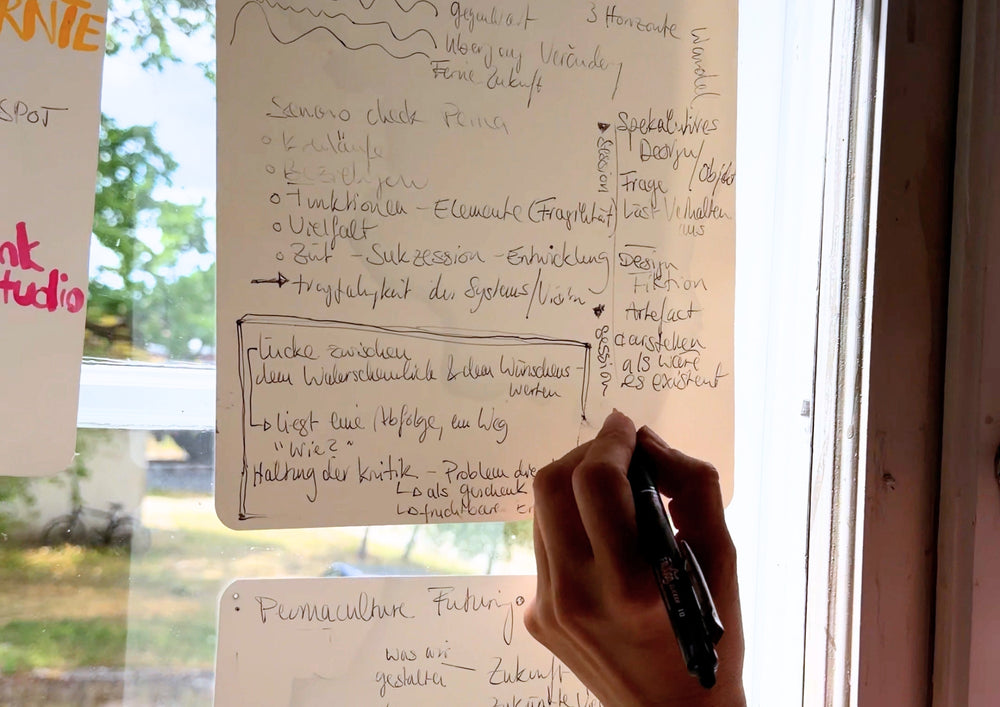 ERNTE
SPOT
nk
tudio
gegenwart
3 Horizonte
Übergang Veränder
Wandel
Ferne Zukunft
check Perma
Kreisläufe
Beziehungen
Funktionen - Elemente (Fragilität)
Vielfalt
Zeit - Sukzession - Entwicklung
Tragfähigkeit des Systems/Vision
Session
Spekulatives
Design/
Objekt
Frage
Löst Verhalten
aus
Session
Design
Fiktion
Artefact
darstellen
als wäre
es existent
Lücke zwischen
dem Wahrscheinlich & dem Wünschens-
werten
liegt eine Abfolge, ein Weg
"Wie?"
Haltung der Kritik - Problem
als geschenk
fruchtbare
Permaculture Futuring
was wir
gestalten
Zukunft